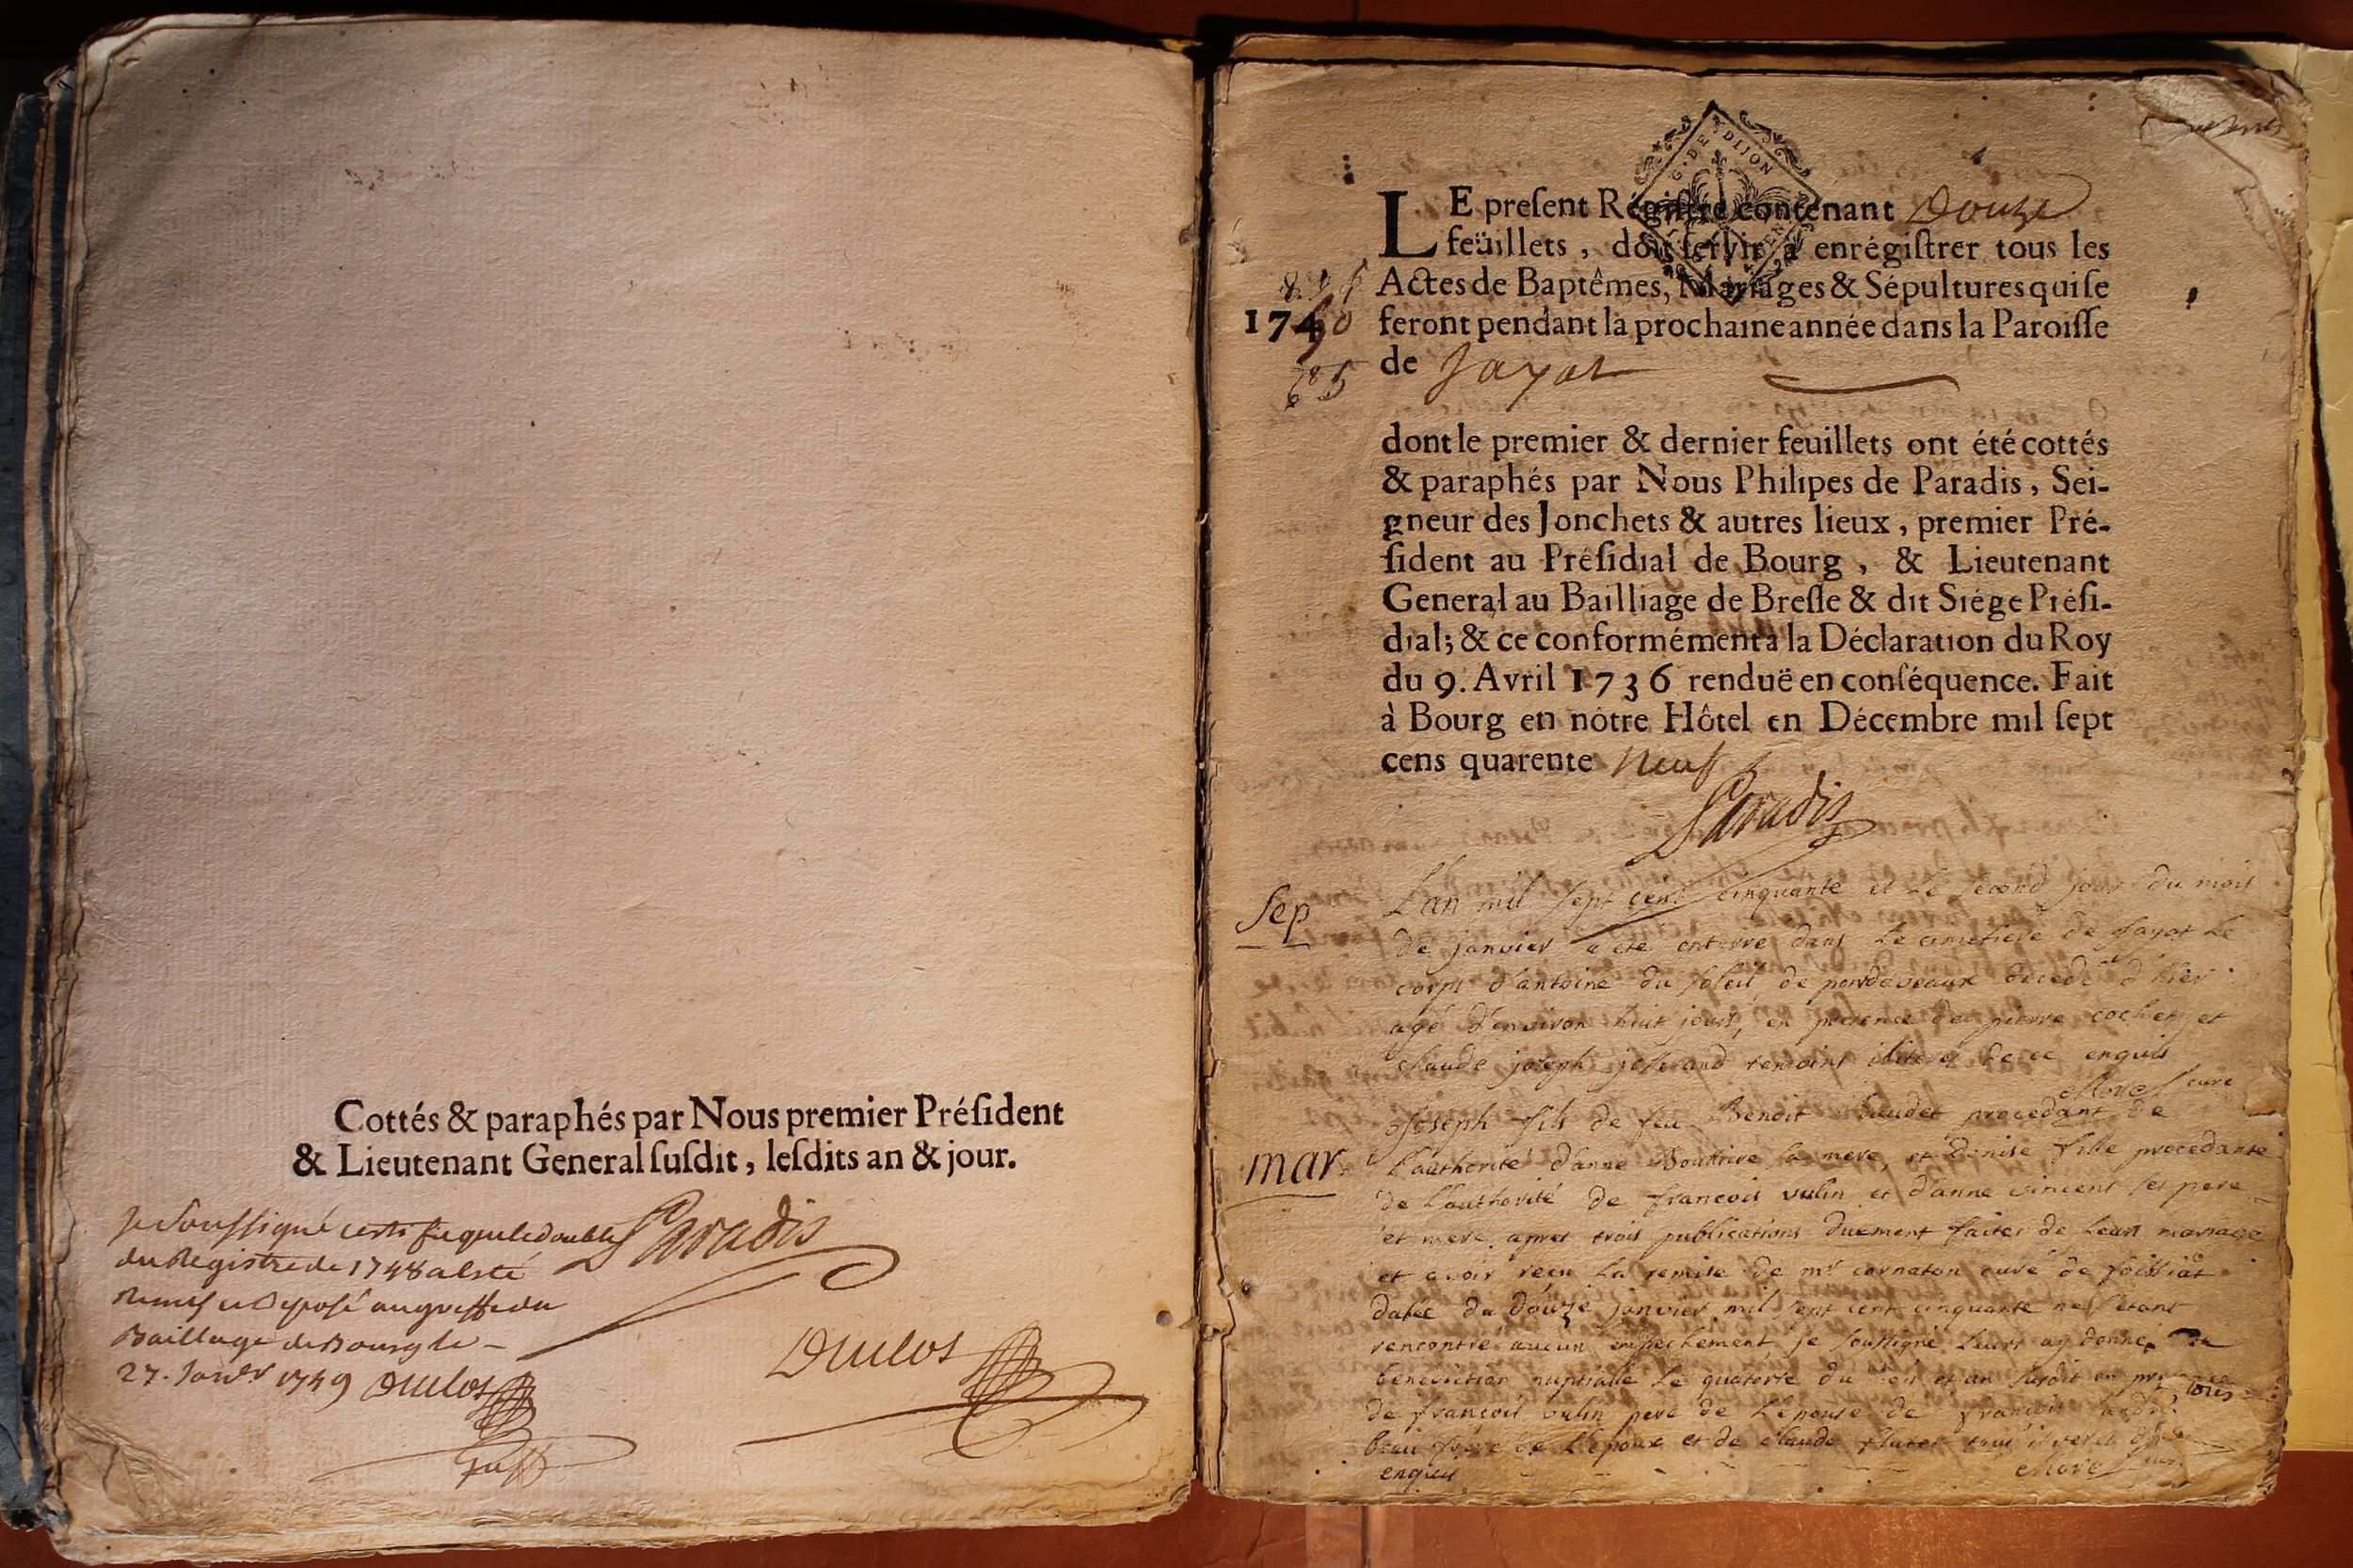 Cottés & paraphés par Nous premier Préſident
& Lieutenant General ſuſdit, leſdits an & jour.
Je Soussigné certifie que le double
du Registre de 1748 a esté
remis et Deposé au greffe du
Bailliage de Bourg le -
27. Janvr 1749 Duclos
Paradis
Duclos
G. DE DIJON
LE preſent Régiſtre contenant Douze
feüillets, doit ſervir à enrégiſtrer tous les
Actes de Baptêmes, Mariages & Sépultures qui ſe
1750
feront pendant la prochaine année dans la Paroiſſe
de Jayat
dont le premier & dernier feuillets ont été cottés
& paraphés par Nous Philipes de Paradis, Sei-
gneur des Jonchets & autres lieux, premier Pré-
ſident au Préſidial de Bourg, & Lieutenant
General au Bailliage de Breſſe & dit Siége Préſi-
dial; & ce conformément à la Déclaration du Roy
du 9. Avril 1736 renduë en conſéquence. Fait
à Bourg en nôtre Hôtel en Décembre mil ſept
cens quarente neuf
Paradis
Sep
L'an mil sept cent cinquante et le second jour du mois
de janvier a été enterré dans le cimetiere de Jayat le
corps d'antoine du soleil de pondeveaux decedé d'hier
agé d'environ huit jours, en presence de pierre cochet et
claude joseph temoins de ce enquis
Morel curé
mar.
Joseph fils de feu Benoit procedant de
l'authorité d'anne sa mere, et Denise fille procedante
de l'authorité de francois vulin et d'anne vincent ses pere
et mere apres trois publications duement faites de leur mariage
et avoir recu la remise de mr cornaton curé de foissiat
datée du douze janvier mil sept cent cinquante ne s'etant
rencontré aucun empechement je soussigné leurs ay donné la
benediction nuptialle le quatorze du mois et an susdit en
de francois vulin pere de l'epouse de francois
beau frere de l'epoux et de claude tous de ce
enquis
Morel